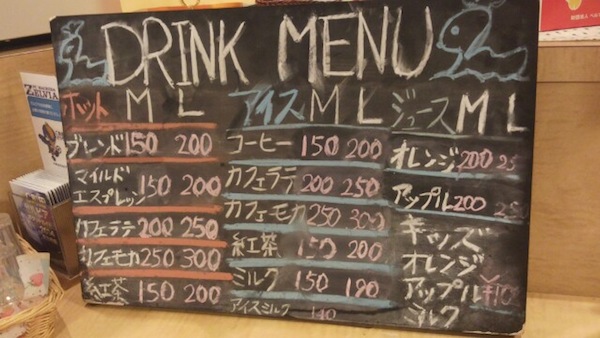 DRINK MENU
ホット M L
ブレンド 150 200
マイルド
エスプレッソ 150 200
カフェラテ 200 250
カフェモカ 250 300
紅茶 150 200
アイス M L
コーヒー 150 200
カフェラテ 200 250
カフェモカ 250 300
紅茶 150 200
ミルク 150 180
アイスミルク 140
ジュース M L
オレンジ 200 25
アップル 200 250
キッズ
オレンジ
アップル
ミルク
ZELVIA